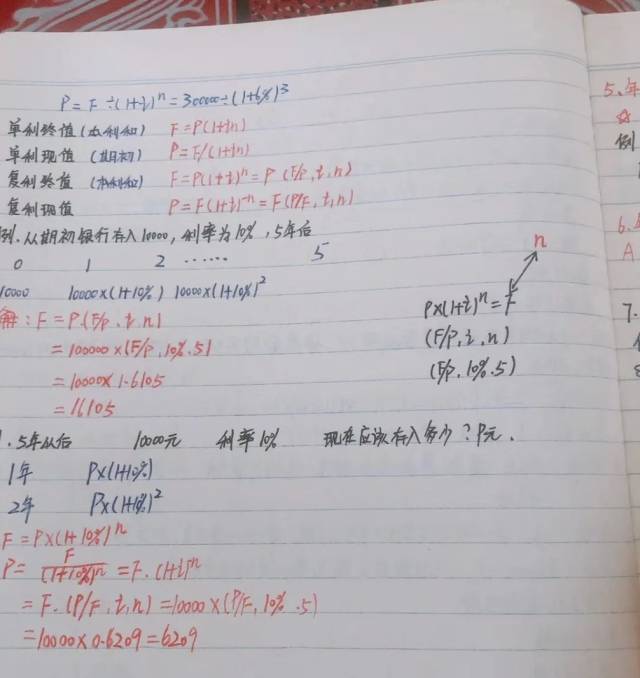 P = F ÷ (1+i)ⁿ = 300000 ÷ (1+6%)³
单利终值 (本利和) F = P(1+in)
单利现值 (期初) P = F/(1+in)
复利终值 (本利和) F = P(1+i)ⁿ = P (F/P, i, n)
复利现值 P = F(1+i)⁻ⁿ = F(P/F, i, n)
例. 从期初银行存入10000, 利率为10%, 5年后
0 1 2 …… 5
10000 10000×(1+10%) 10000×(1+10%)²
解: F = P.(F/P, i, n)
= 100000×(F/P, 10%, 5)
= 10000×1.6105
= 16105
n
P×(1+i)ⁿ = F
(F/P, i, n)
(F/P, 10%, 5)
1. 5年以后 10000元 利率10% 现在应该存入多少? P元.
1年 P×(1+10%)
2年 P×(1+10%)²
F = P×(1+10%)ⁿ
P = F/(1+10%)ⁿ = F. (1+i)ⁿ
= F. (P/F, i, n) = 10000×(P/F, 10%, 5)
= 10000×0.6209 = 6209
5、年
☆
例
6.
A
7.